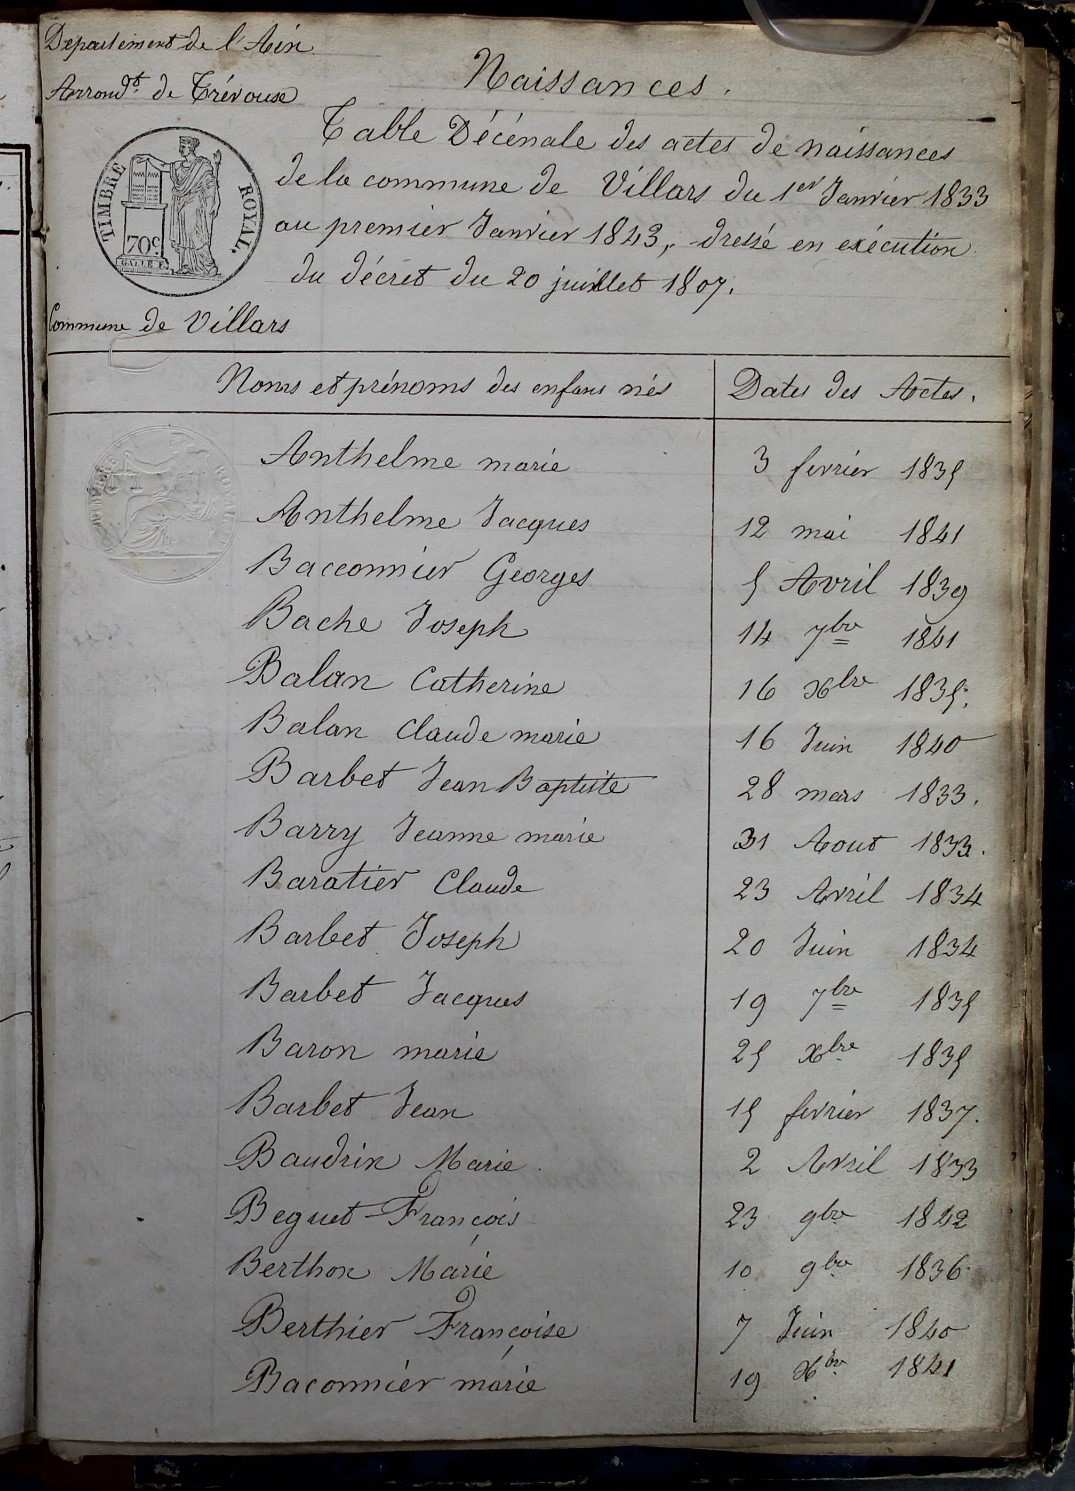 Département de l'Ain
Arrondt. de Trévouse
Naissances.
Table Décénale des actes de naissances
de la commune de Villars du 1er Janvier 1833
au premier Janvier 1843, dressé en exécution
du décret du 20 juillet 1807.
TIMBRE ROYAL.
70c.
Commune de Villars
Noms et prénoms des enfans nés Dates des Actes.
Anthelme marie 3 fevrier 1835
Anthelme Jacques 12 mai 1841
Bacconnier Georges 5 Avril 1839
Bache Joseph 14 7bre 1841
Balan Catherine 16 Xbre 1835.
Balan Claude marie 16 Juin 1840
Barbet Jean Baptiste 28 mars 1833.
Barry Jeanne marie 31 Aout 1833.
Baratier Claude 23 Avril 1834
Barbet Joseph 20 Juin 1834
Barbet Jacques 19 7bre 1835
Baron marie 25 Xbre 1835
Barbet Jean 15 fevrier 1837.
Baudrin Marie. 2 Avril 1833
Beguet François 23 9bre 1842
Berthon Marie 10 9bre 1836
Berthier Françoise 7 Juin 1840
Baconnier marie 19 Xbre 1841